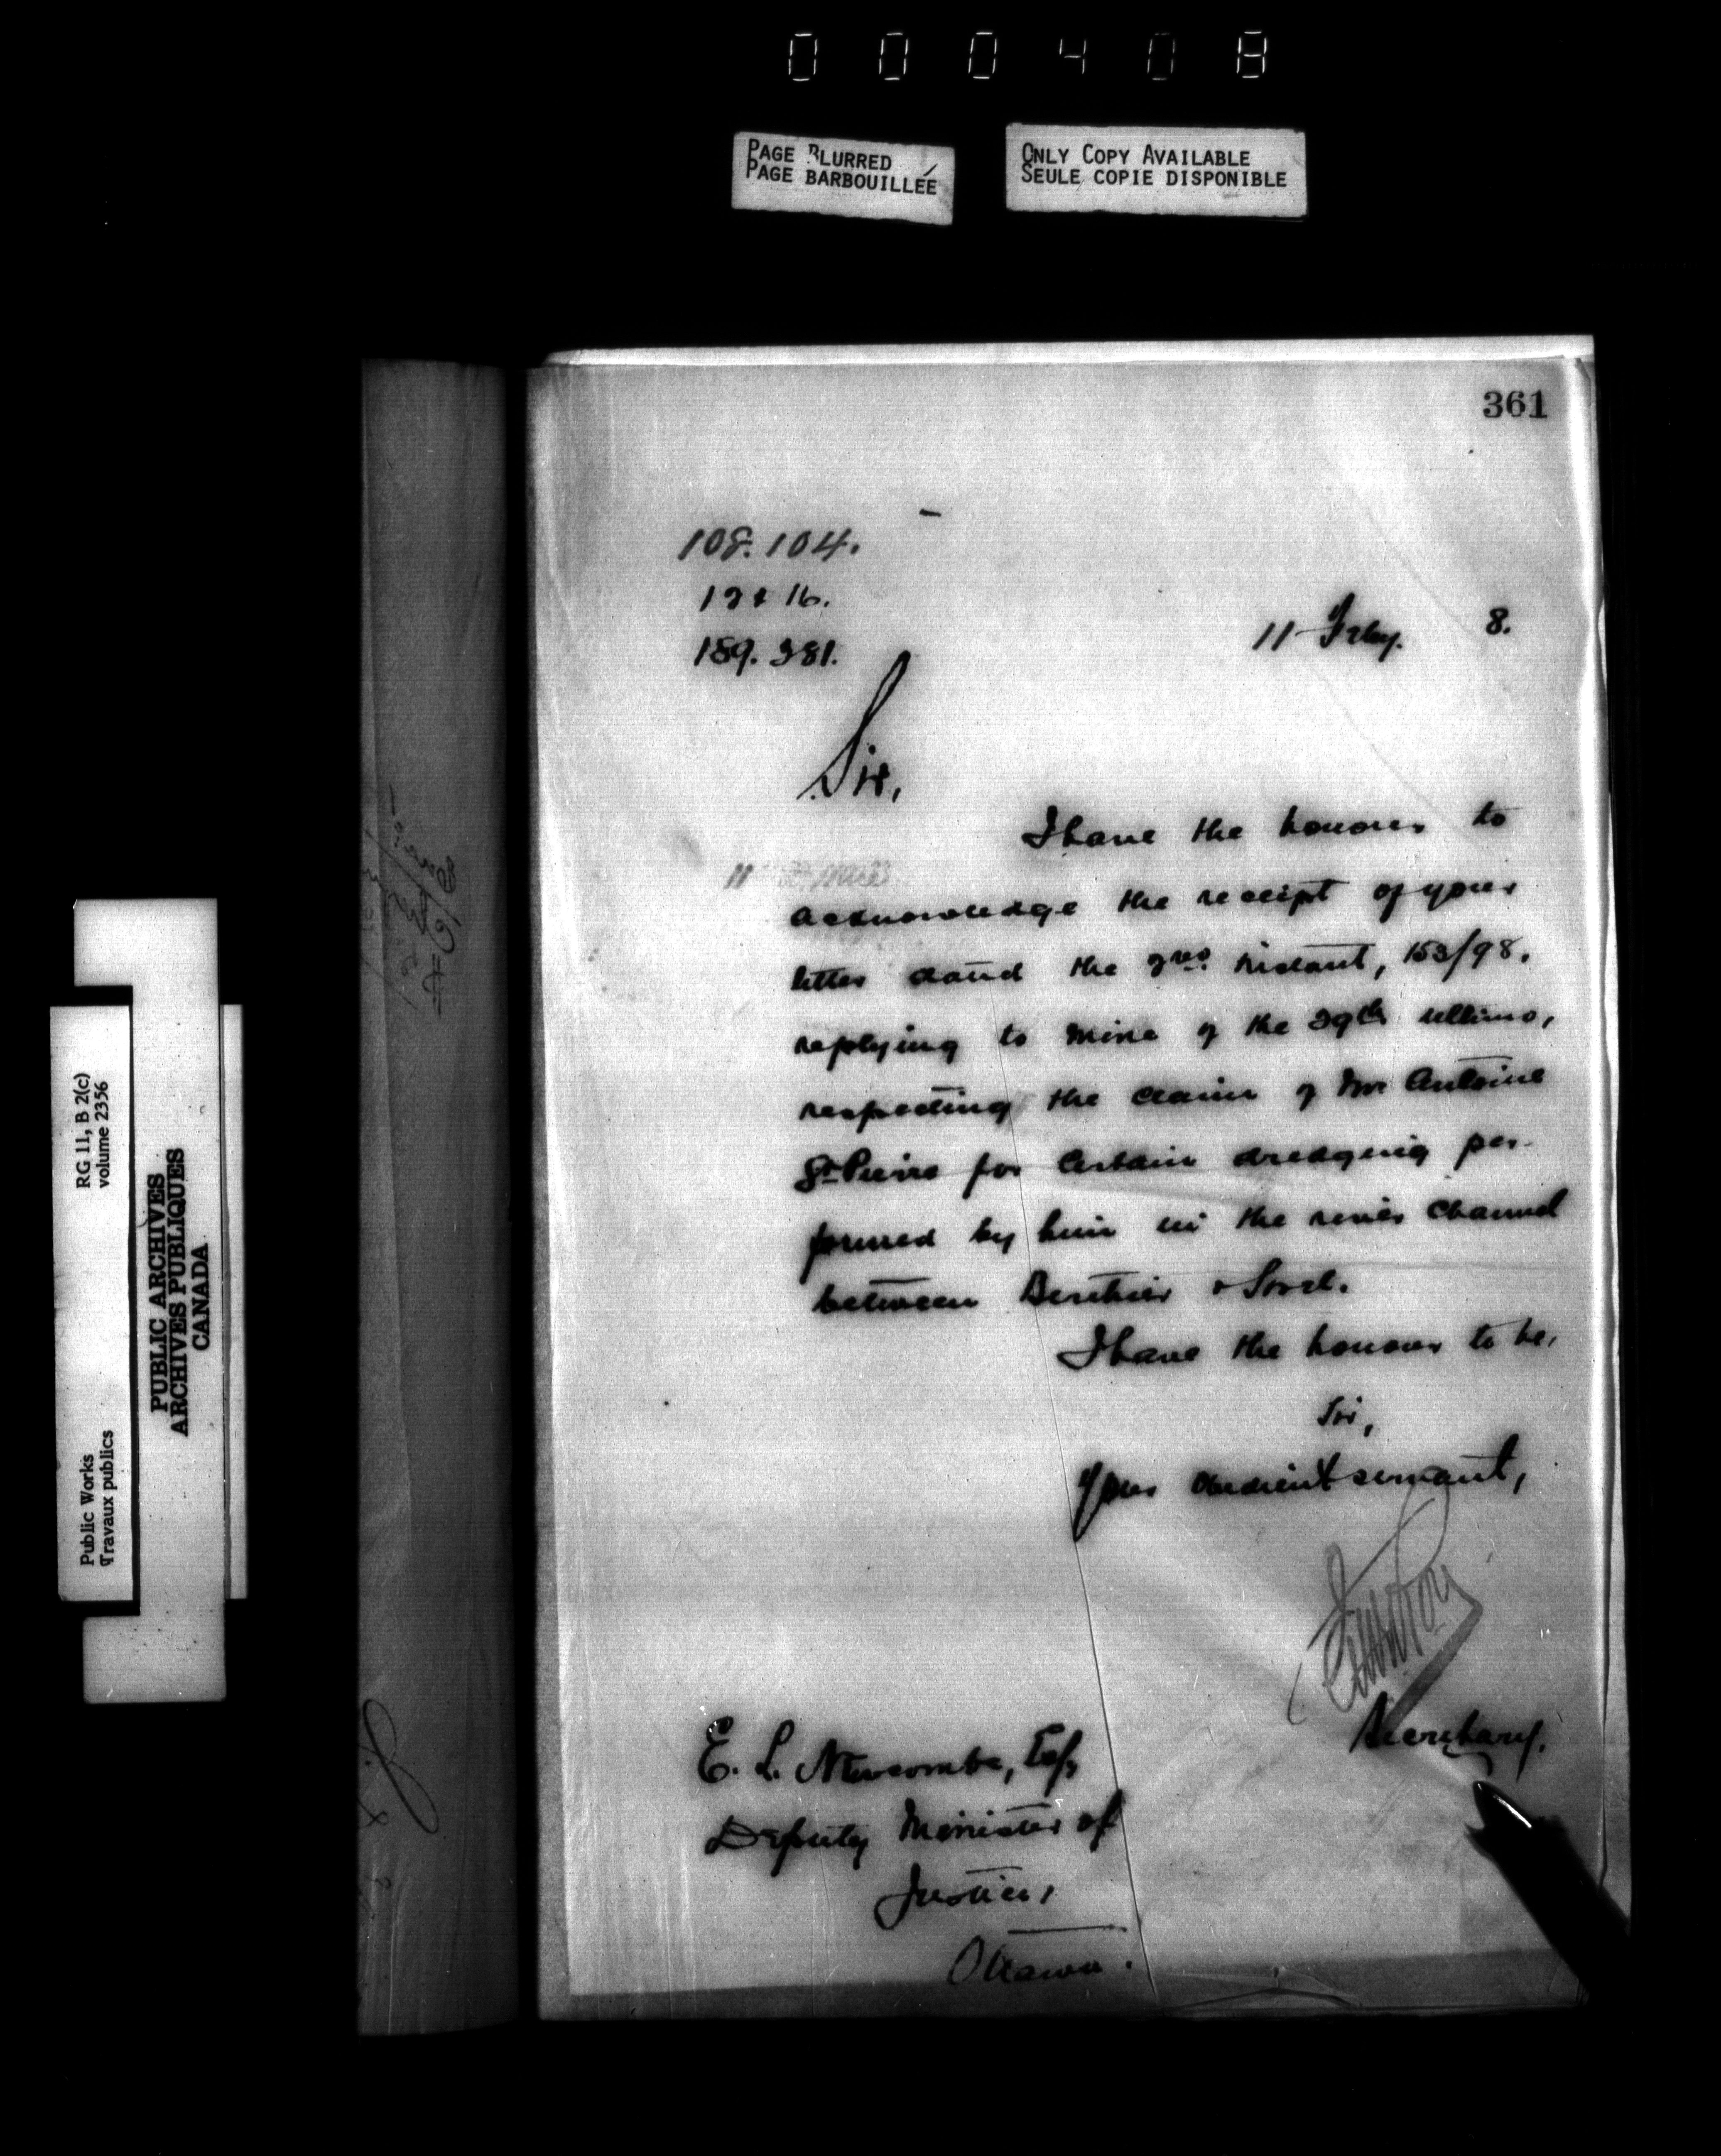 000408
PAGE BLURRED
PAGE BARBOUILLÉE
ONLY COPY AVAILABLE
SEULE COPIE DISPONIBLE
361
108.104.
12 & 16.
189.381.
11 Feby. 8.
Sir,
I have the honour to
acknowledge the receipt of your
letter dated the instant, 153/98.
replying to mine of the 29th ultimo,
respecting the claim of Mr Antoine
St Pierre for certain dredging per-
formed by him in the river channel
between Berthier & Sorel.
I have the honour to be,
Sir,
Your obedient servant,
Secretary.
E. L. Newcombe, Esq
Deputy Minister of
Justice,
Ottawa.
Public Works
Travaux publics
RG 11, B 2(c)
volume 2356
PUBLIC ARCHIVES
ARCHIVES PUBLIQUES
CANADA